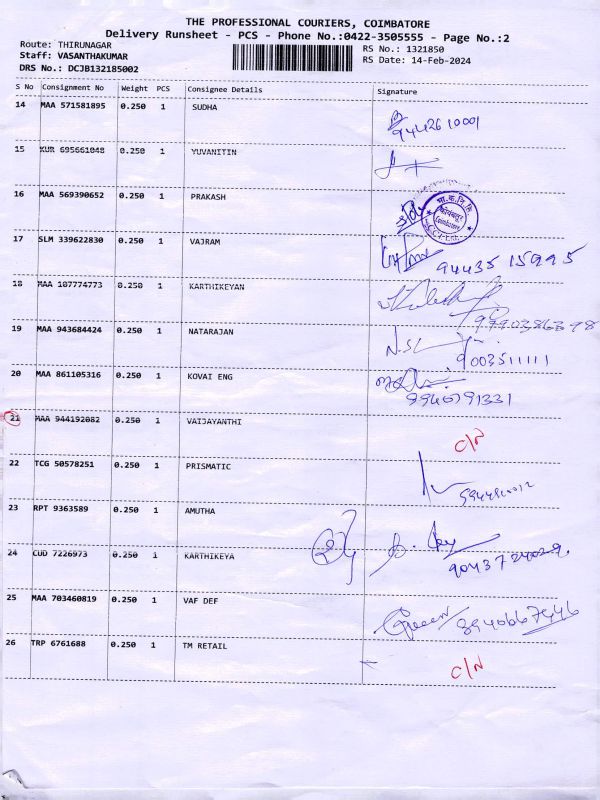 THE PROFESSIONAL COURIERS, COIMBATORE
Delivery Runsheet - PCS - Phone No.:0422-3505555 - Page No.:2
Route: THIRUNAGAR RS No.: 1321850
Staff: VASANTHAKUMAR RS Date: 14-Feb-2024
DRS No.: DCJB132185002
S No Consignment No Weight PCS Consignee Details Signature
14 MAA 571581895 0.250 1 SUDHA
9442610001
15 KUR 695661048 0.250 1 YUVANITIN
16 MAA 569390652 0.250 1 PRAKASH
17 SLM 339622830 0.250 1 VAJRAM
94435 15995
18 MAA 107774773 0.250 1 KARTHIKEYAN
19 MAA 943684424 0.250 1 NATARAJAN
9003511111
20 MAA 861105316 0.250 1 KOVAI ENG
9940791331
21 MAA 944192082 0.250 1 VAIJAYANTHI
C/N
22 TCG 50578251 0.250 1 PRISMATIC
23 RPT 9363589 0.250 1 AMUTHA
24 CUD 7226973 0.250 1 KARTHIKEYA
25 MAA 703460819 0.250 1 VAF DEF
26 TRP 6761688 0.250 1 TM RETAIL
C/N